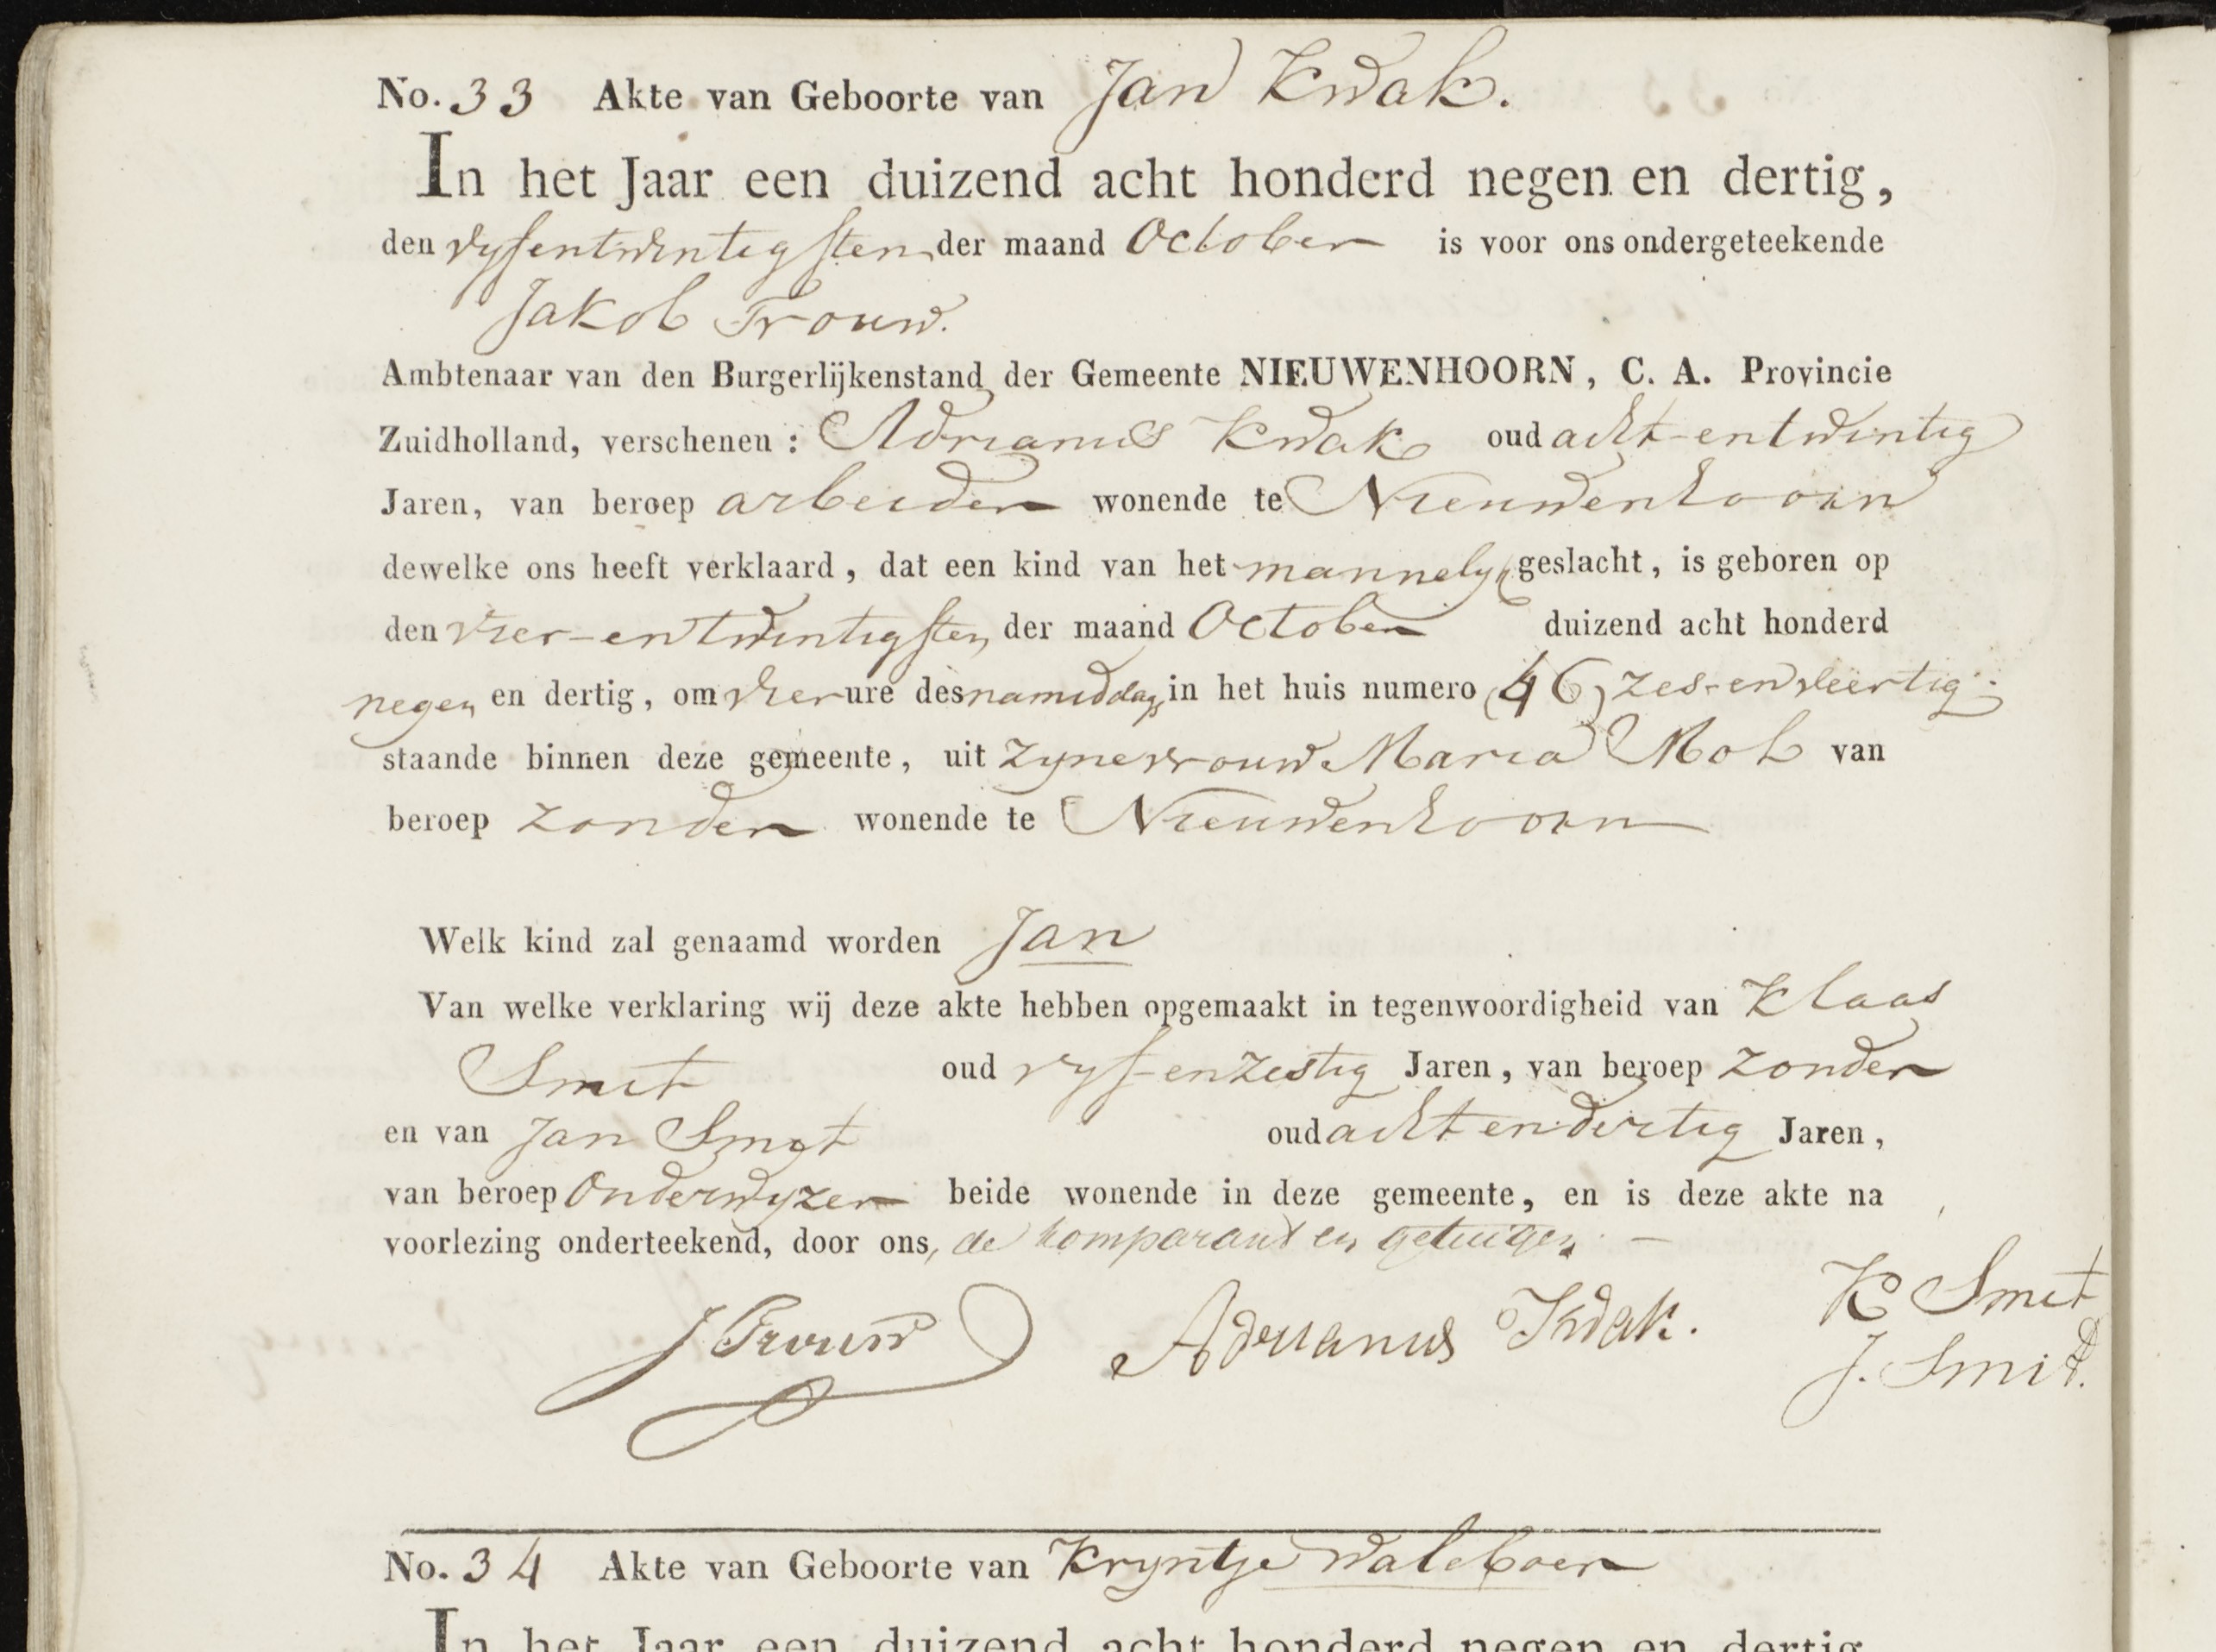 No. 33 Akte van Geboorte van Jan Kwak.
In het Jaar een duizend acht honderd negen en dertig,
den vyfentwintigsten der maand October is voor ons ondergeteekende
Jakob Trouw.
Ambtenaar van den Burgerlijkenstand der Gemeente NIEUWENHOORN, C. A. Provincie
Zuidholland, verschenen: Adrianus Kwak oud acht-entwintig
Jaren, van beroep arbeider wonende te Nieuwenhoorn
dewelke ons heeft verklaard, dat een kind van het mannelyk geslacht, is geboren op
den vier-entwintigsten der maand October duizend acht honderd
negen en dertig, om vier ure des namiddags in het huis numero (46) zes-en veertig
staande binnen deze gemeente, uit zyne vrouw Maria Mol van
beroep zonder wonende te Nieuwenhoorn
Welk kind zal genaamd worden Jan
Van welke verklaring wij deze akte hebben opgemaakt in tegenwoordigheid van Klaas
Smit oud vyf-enzestig Jaren, van beroep zonder
en van Jan Smit oud acht en dertig Jaren,
van beroep Onderwyzer beide wonende in deze gemeente, en is deze akte na
voorlezing onderteekend, door ons, de komparant en getuigen. —
J Trouw Adrianus Kwak. K Smit
J. Smit.
No. 34 Akte van Geboorte van Kryntje Waleboer
In het Jaar een duizend acht honderd negen en dertig